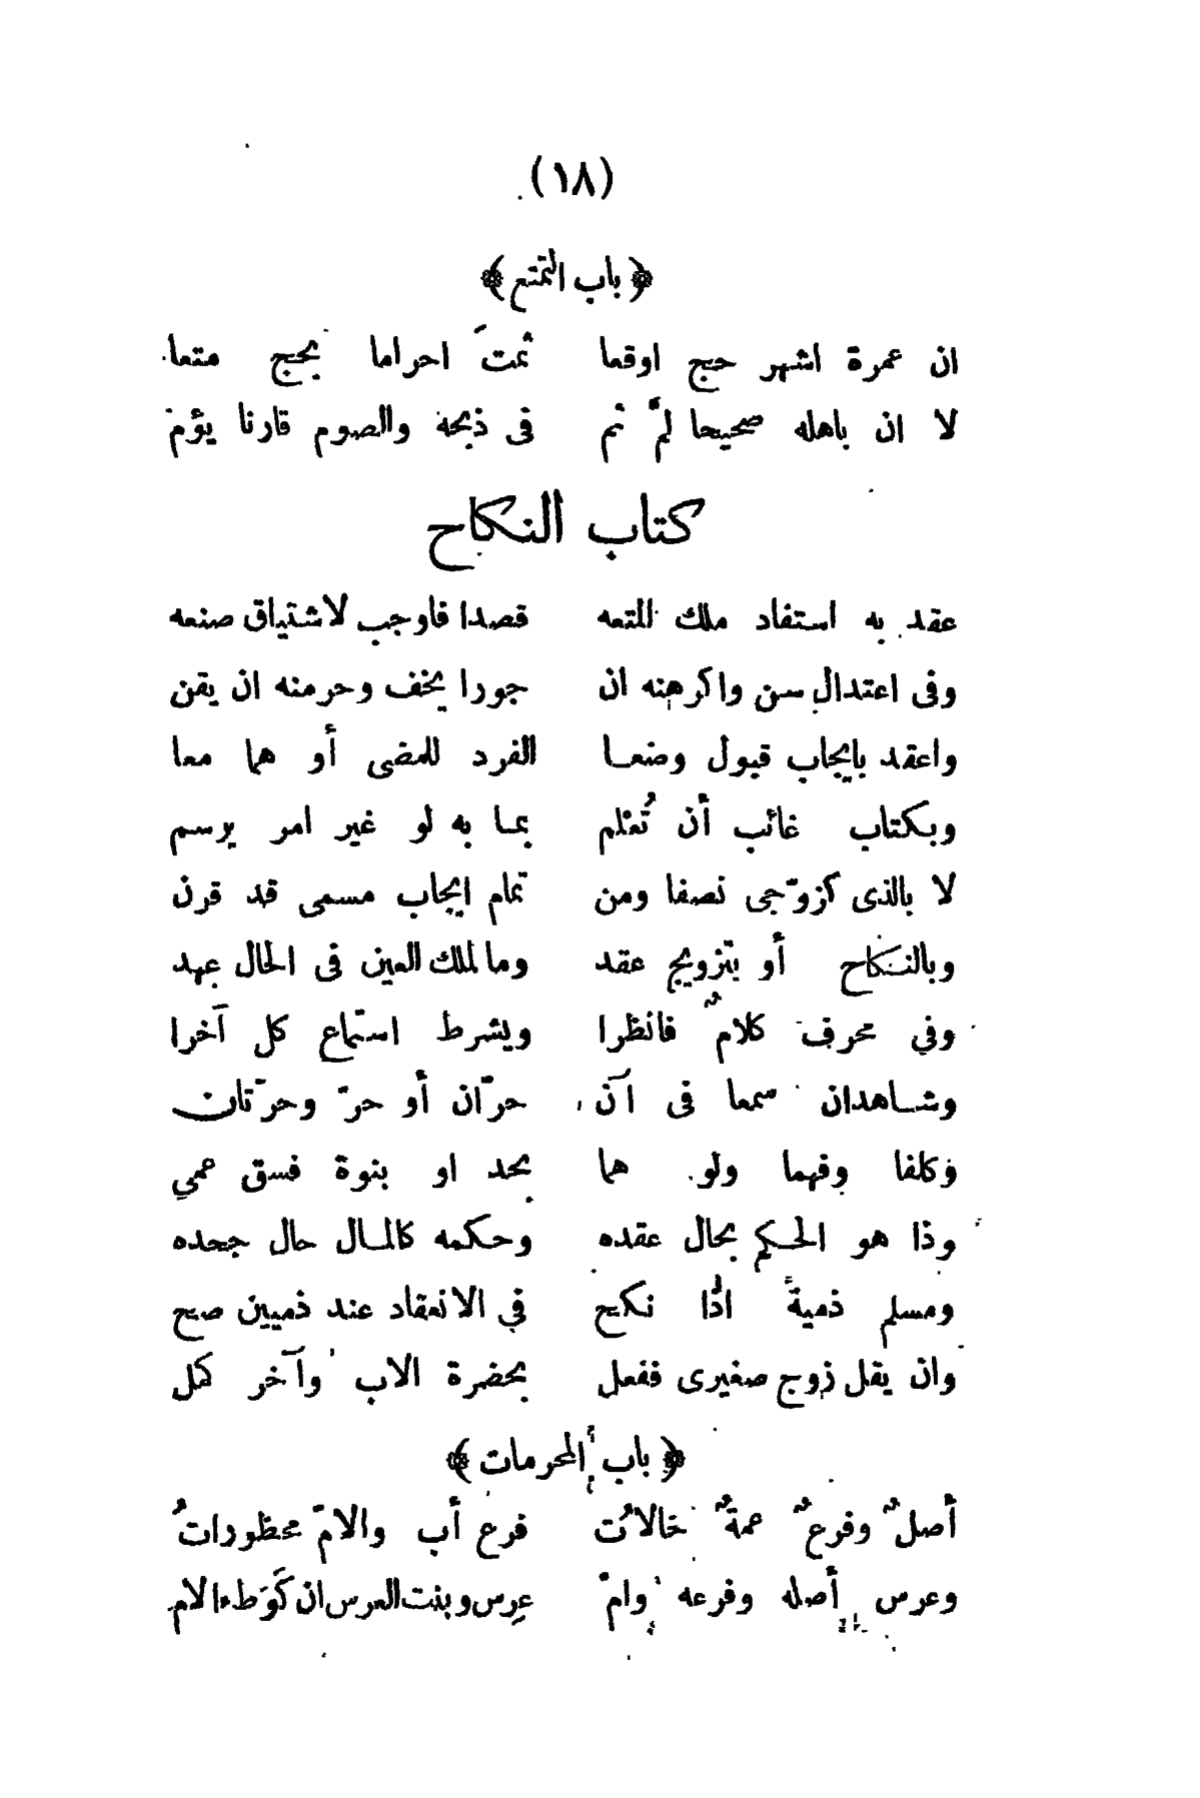 (١٨)
﴿ باب التمتع ﴾
ان عمرة اشهر حج اوقعا ثمتَ احراما بحج متعا
لا ان باهله صحيحا لمَّ ثم فى ذبحه والصوم قارنا يؤم
كتاب النكاح
عقد به استفاد ملك المتعه قصدا فاوجب لاشتياق صنعه
وفى اعتدال سن واكرهنه ان جورا يخف وحرمنه ان يقن
واعقد بايجاب قبول وضعا الفرد للمضى أو هما معا
وبكتاب غائب أن تُعْلم بما به لو غير امر يرسم
لا بالذى كزوّجى نصفا ومن تمام ايجاب مسمى قد قرن
وبالنكاح أو بتزويج عقد وما لملك العين فى الحال عهد
وفي محرف كلامٌ فانظرا ويشرط استماع كل آخرا
وشاهدان سمعا فى آن حرّان أو حرّ وحرّتان
وكلفا وفهما ولو هما بحد او بنوة فسق عمي
وذا هو الحكم بحال عقده وحكمه كالمال حال جحده
ومسلم ذميةً اذا نكح في الانعقاد عند ذميين صح
وان يقل زوج صغيرى ففعل بحضرة الاب وآخر كمل
﴿ باب المحرمات ﴾
أصلٌ وفرعٌ عمةٌ خالاتُ فرع أب والامّ محظوراتُ
وعرس أصله وفرعه وامّ عرس وبنت العرس ان كَوَطء الام